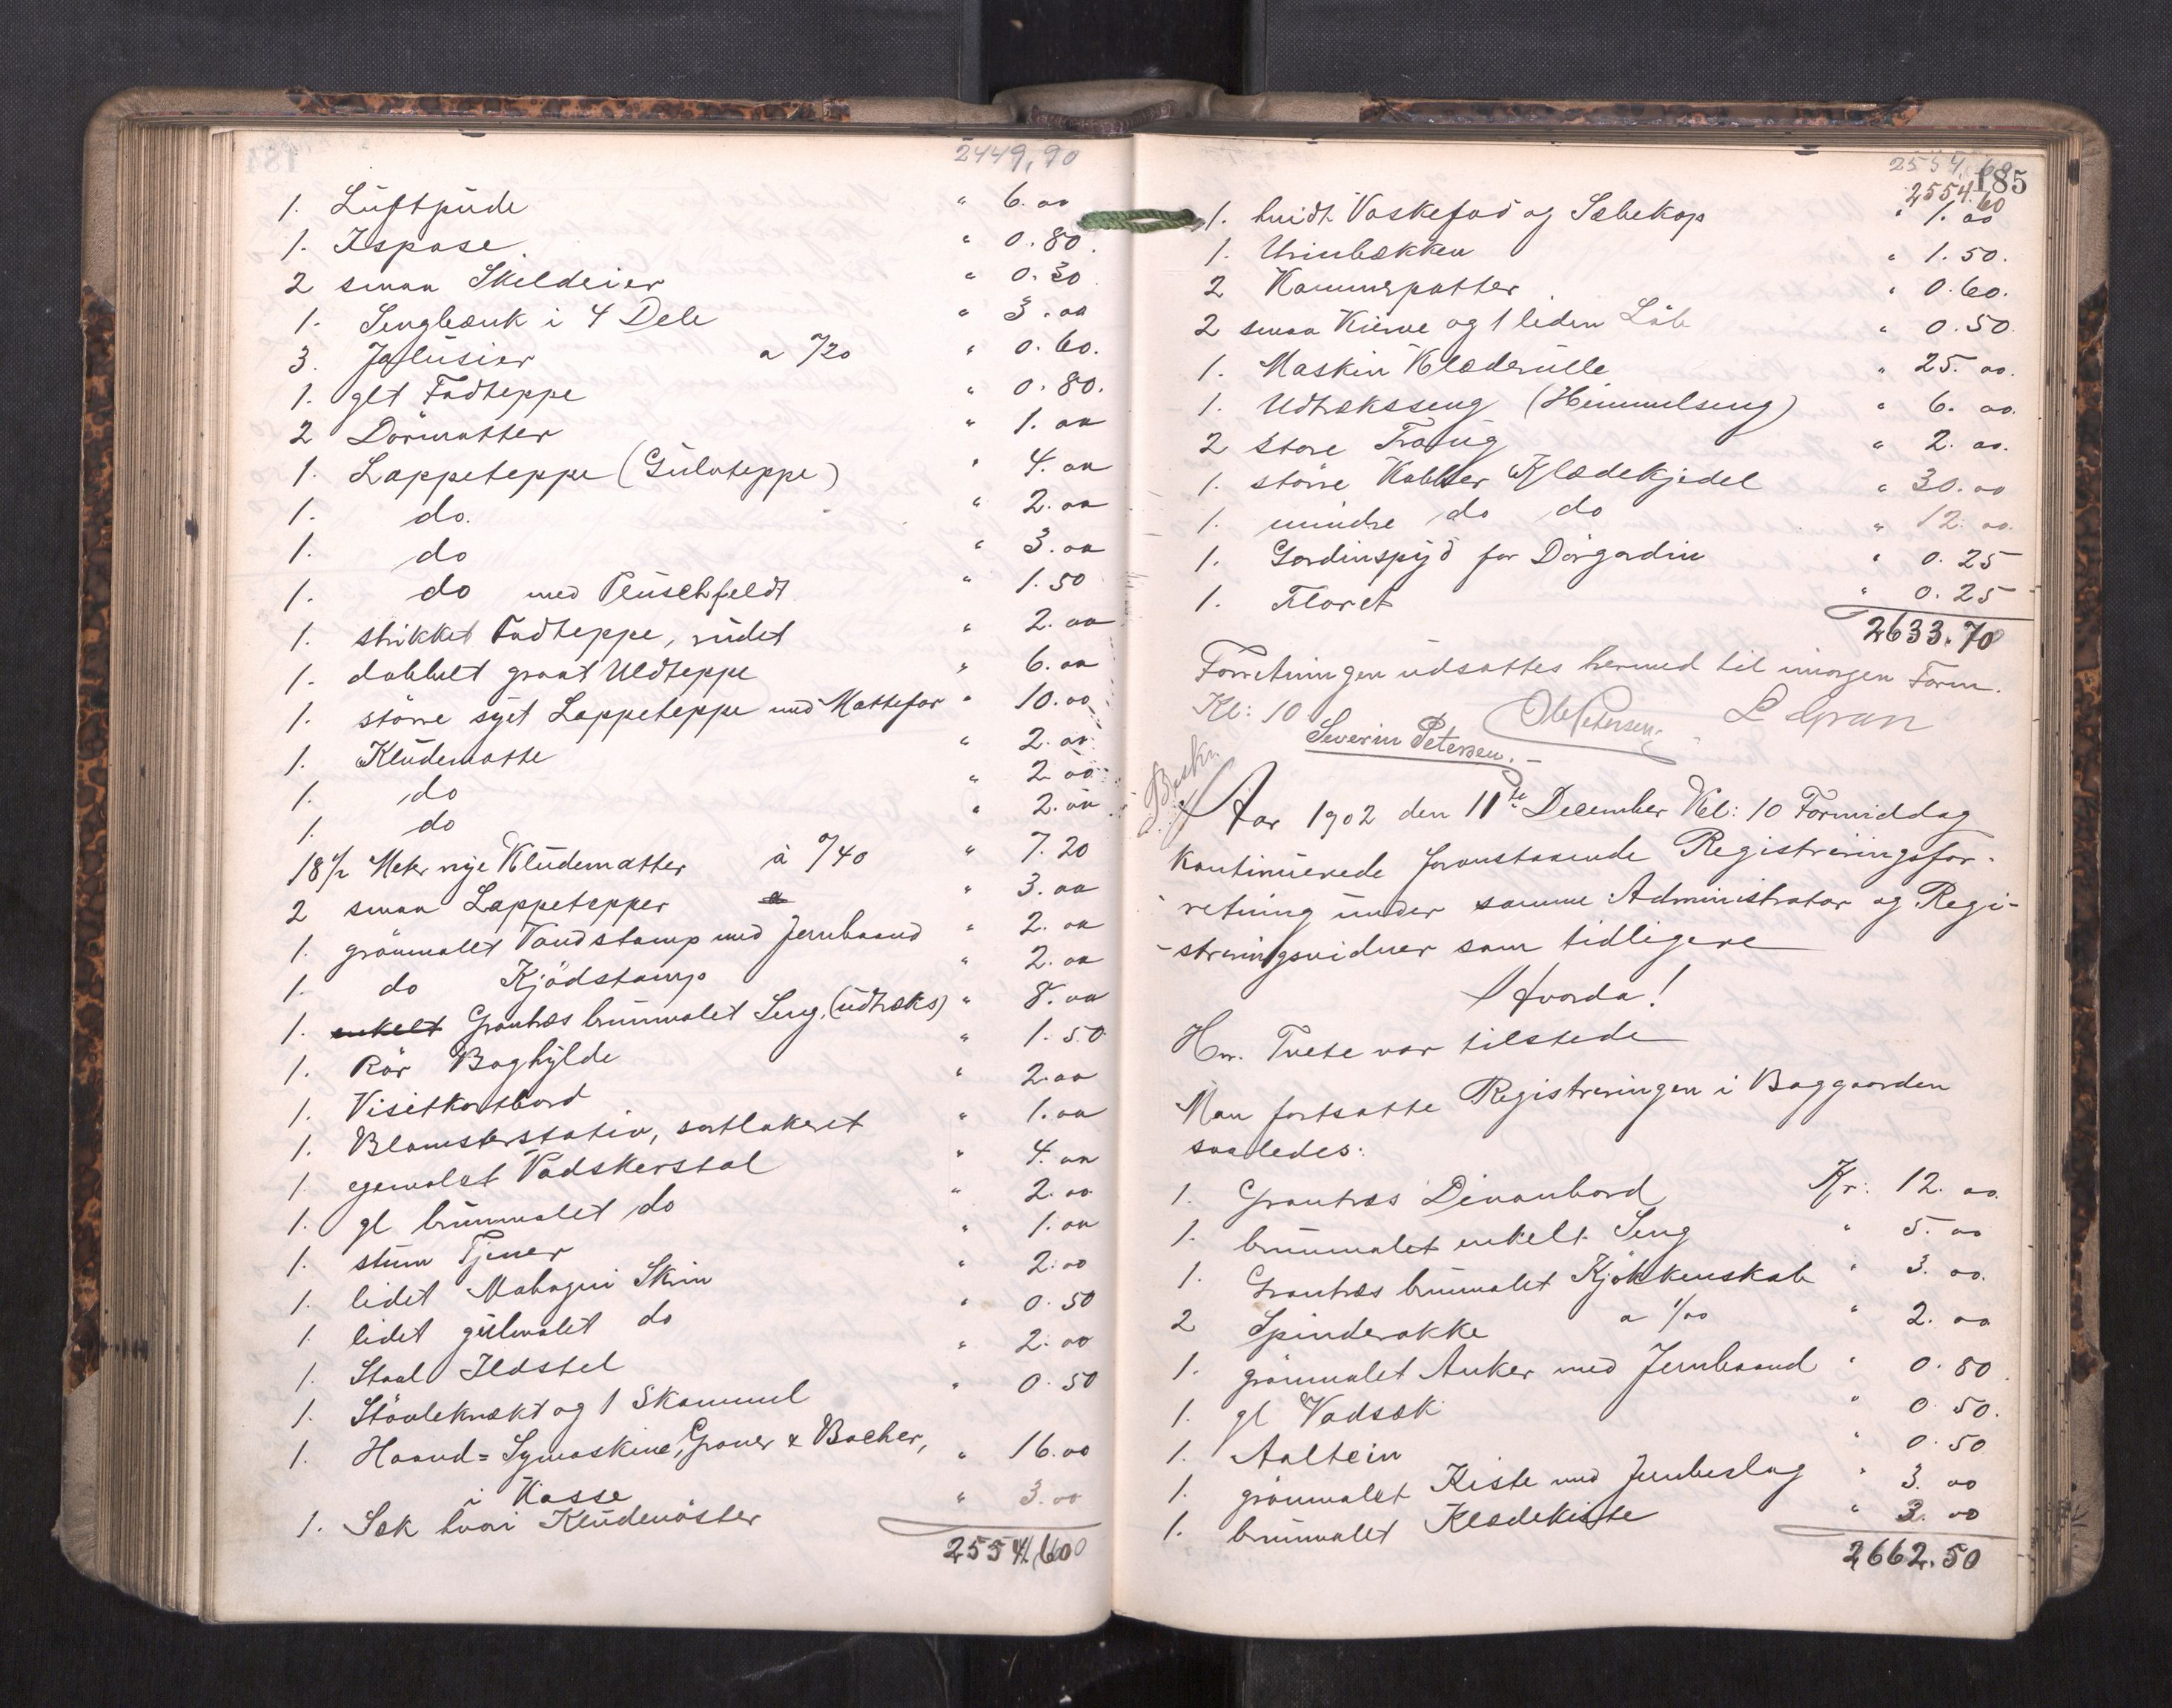 2449,90
1. Luftpude " 6.00
1. Ispose " 0.80.
2 smaa Skilderier " 0.30
1. Sengbænk i 4 Dele " 3.00
3. Jalusier a 0/20 " 0.60.
1. glt Fodteppe " 0.80.
2 Dörmatter " 1.00
1. Lappeteppe (Gulvteppe) " 4.00
1. do. " 2.00
1. do " 3.00
1. do med Pluschfeldt " 1.50
1. strikket Fodteppe, rudet " 2.00
1. dobbelt graat Uldteppe " 6.00
1. større syet Lappeteppe med Mattefor " 10.00
1. Kludematte " 2.00
1. do " 2.00
1. do " 2.00
18 1/2 Metr nye Kludematter à 0/40 " 7.20
2 smaa Lappetepper " 3.00
1. grönmalet Vandstamp med Jernbaand " 2.00
1. do Kjödstamp " 2.00
1. enkelt Grantræs brunmalet Seng (udtræks) " 8.00
1. Rör Boghylde " 1.50
1. Visitkortbord " 2.00
1. Blomsterstativ, sortlakeret " 1.00
1. egemalet Vadskerstol " 4.00
1. gl brunmalet do " 2.00
1. stum Tjener " 1.00
1. lidet Mahogni Skrin " 2.00
1. lidet gulmalet do " 0.50
1. Staal Ildstel " 2.00
1. Stövleknækt og 1 Skammel " 0.50
1. Haand=Symaskine, Grover & Backer, " 16.00
i Kasse
1. Sæk hvori Kludenöster " 3.00
2554,60
2554,60
185
2554.60
1. hvidt Vaskefad og Sæbekop " 1.00
1. Urinbækken " 1.50.
2 Kammerpotter " 0.60.
2 smaa Kurve og 1 liden Löb " 0.50.
1. Maskin Klæderulle " 25.00.
1. Udtræksseng (Himmelseng) " 6.00.
2 store Traug " 2.00.
1. större Kobber Klædekjedel " 30.00
1. mindre do do " 12.00.
1. Gardinspyd for Dörgardin " 0.25
1. Floret " 0.25
2633.70
Forretningen udsattes hermed til imorgen Form.
Kl: 10
Severin Petersen. Ole Petersen L Gran
Aar 1902 den 11te December Kl: 10 Formiddag
kontinuerede foranstaaende Registreringsfor-
retning under samme Administrator og Regi-
-streringsvidner som tidligere
Hvorda!
Hr. Tvete var tilstede
Man fortsatte Registreringen i Baggaarden
saaledes:
1. Grantræs Divanbord Kr. 12.00.
1. brunmalet enkelt Seng " 5.00
1. Grantræs brunmalet Kjökkenskab " 3.00.
2 Spinderokke a 1/00 " 2.00
1. grönmalet Anker med Jernbaand " 0.80.
1. gl Vadsæk " 0.50.
1. Aaltein " 0.50
1. grönmalet Kiste med Jernbeslag " 3.00
1. brunmalet Klædekiste " 3.00
2662.50